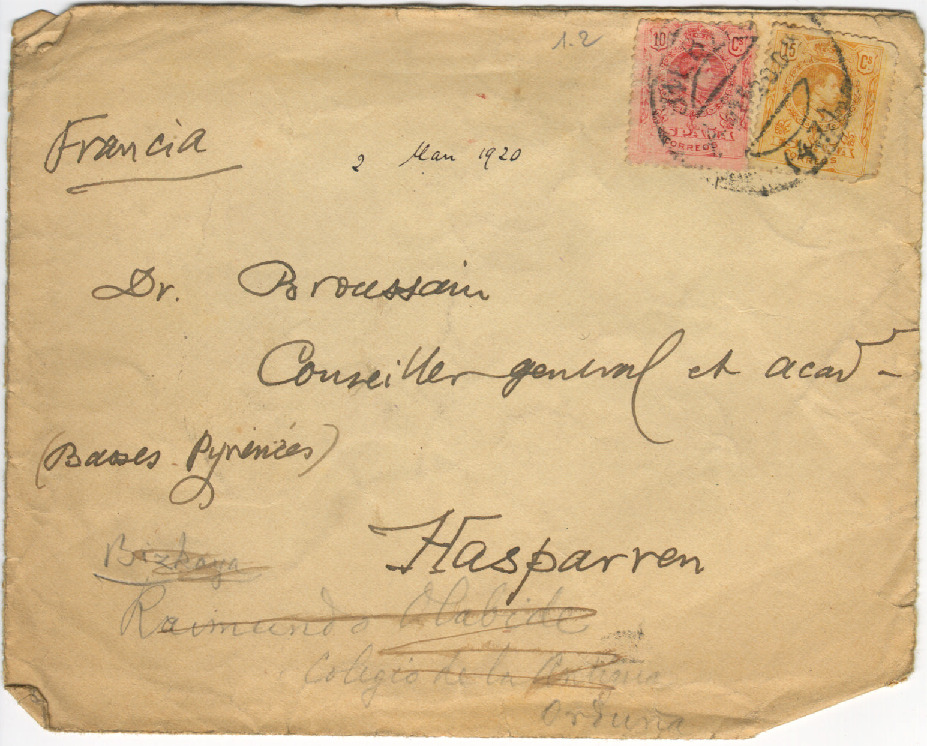 1.2
10 Cs
15 Cs
CORREOS
Francia
2 Mars 1920
Dr. Broussain
Conseiller general et acad
(Basses Pyrénées)
Hasparren
Bizkaya
Raimundo Olabide
Colegio de la Antigua
Orduña